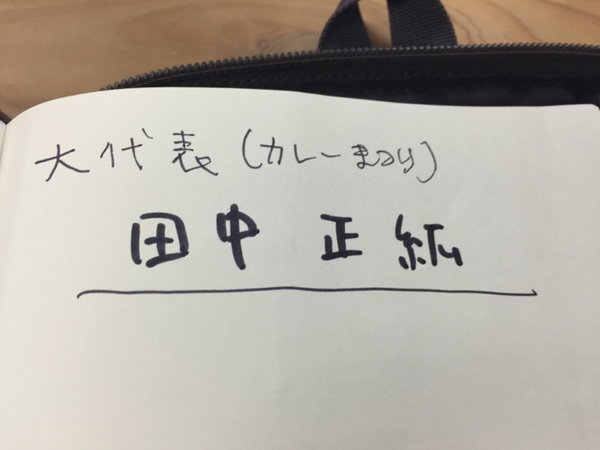 大代表(カレーまつり)
田中 正